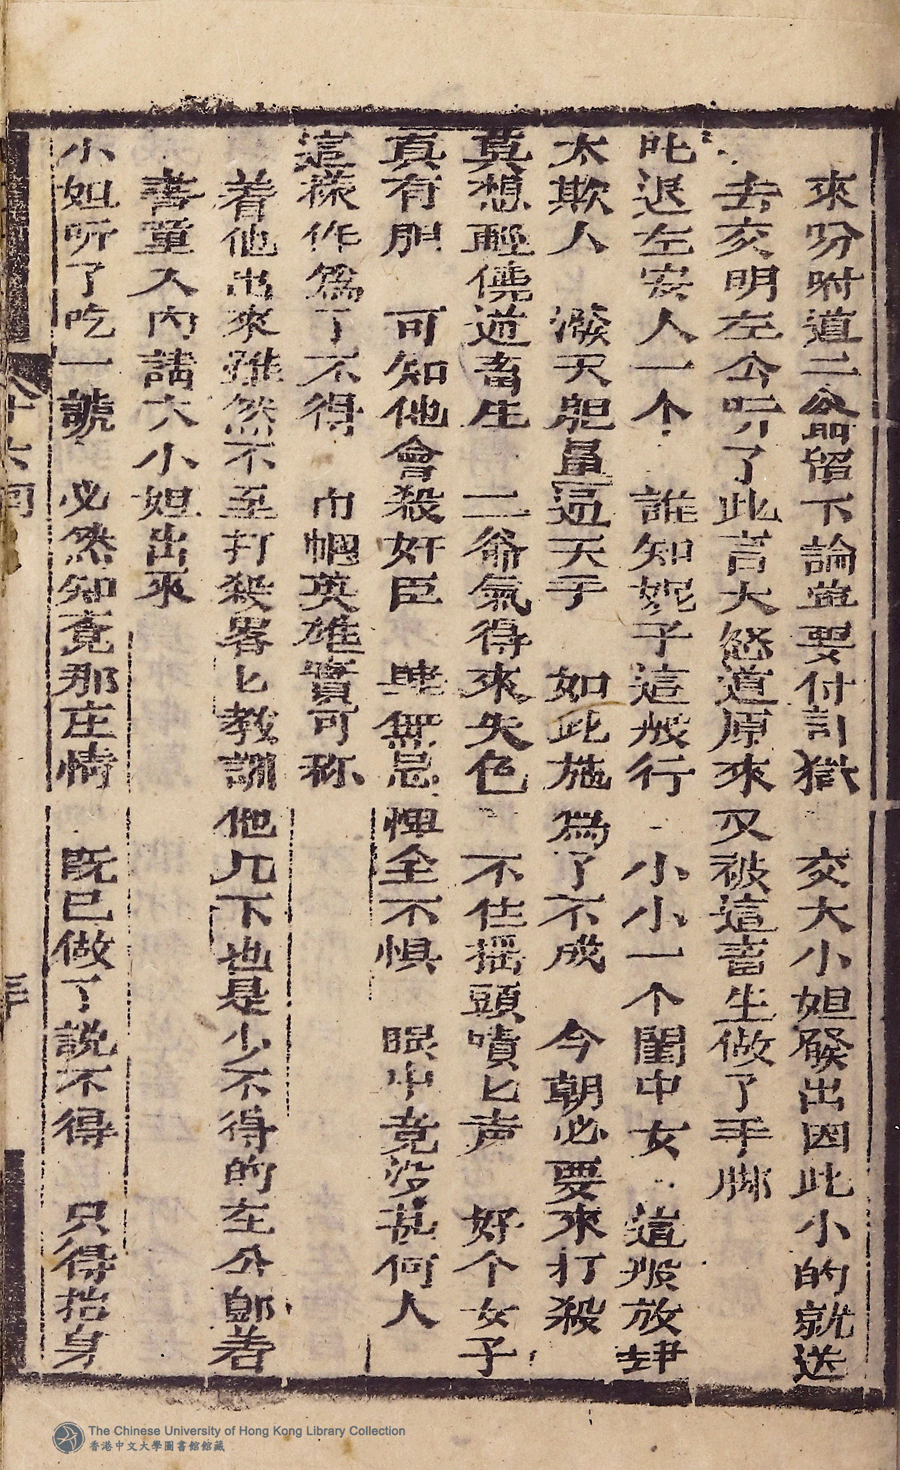 來吩咐道二爺留下論並要付訁獄 交大小姐發出因此小的就送
去交明左公听了此言大怒道原來又被這畜生做了手脚
叱退左安人一个 誰知妮子這般行 小小一个閨中女 這般放肆
太欺人 潑天胆量逼天手 如此施為了不成 今朝必要來打殺
莫想輕饒道畜生 二爺氣得來失色 不住摇頭嘖匕声 好个女子
真有胆 可知他會殺奸臣 肆無忌憚全不惧 眼中竟沒甚何人
這樣作為了不得 巾幗英雄實可称
着他出來雖然不至打殺畧匕教訓他几下也是少不得的左公即着
書童入內請六小姐出來
小姐听了吃一諕 必然知竟那庄情 既已做了說不得 只得抬身
十六
The Chinese University of Hong Kong Library Collection
香港中文大學圖書館館藏